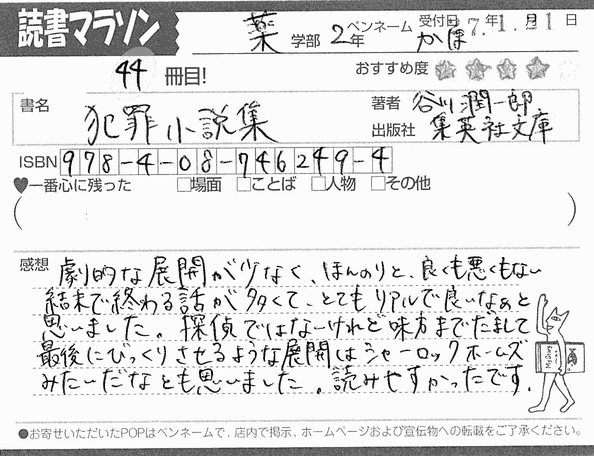 読書マラソン
薬 学部 2年 ペンネーム かほ 受付日 7年1月21日
44 冊目!
おすすめ度
書名 犯罪小説集
著者 谷川潤一郎
出版社 集英社文庫
ISBN 978-4-08-746249-4
♥一番心に残った □場面 □ことば □人物 □その他
( )
感想 劇的な展開が少なく、ほんのりと、良くも悪くもない
結末で終わる話が多くて、とてもリアルで良いなぁと
思いました。探偵ではなーけれど味方までだまして
最後にびっくりさせるような展開はシャーロックホームズ
みたいだなとも思いました。読みやすかったです。
●お寄せいただいたPOPはペンネームで、店内で掲示、ホームページおよび宣伝物への転載をご了承ください。